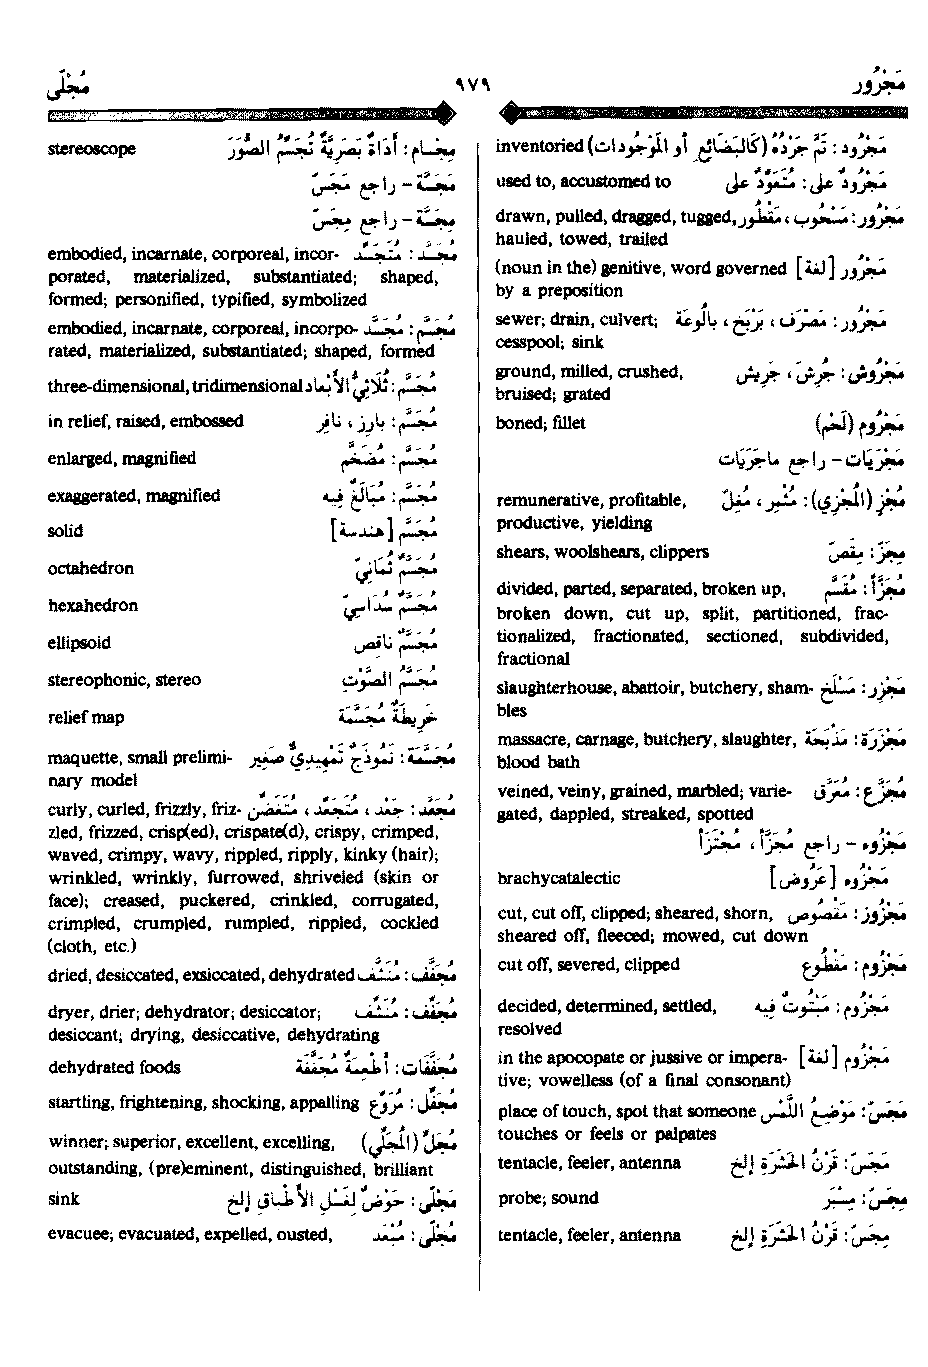 مَجْرُور ٩٧٩ مُجْلًى
مَجْرُود : تَمَّ جَرْدُهُ (كَالبَضَائِعِ أو المَوْجُودات) inventoried
مَجْرُودٌ على : مُتَعَوِّدٌ على used to, accustomed to
مَجْرُور : مَسْحُوب ، مَقْطُور drawn, pulled, dragged, tugged,
hauled, towed, trailed
مَجْرُور [لغة] (noun in the) genitive, word governed
by a preposition
مَجْرُور : مَصْرَف ، بَرْبَخ ، بالُوعَة sewer; drain, culvert;
cesspool; sink
مَجْرُوش : جُرِشَ ، جَرِيش ground, milled, crushed,
bruised; grated
مَجْرُوم (لَحْم) boned; fillet
مَجْرَيَات - راجع ماجَرَيَات
مُجْزٍ (المُجْزِي) : مُثْمِر ، مُغِلّ remunerative, profitable,
productive, yielding
مِجَزّ : مِقَصّ shears, woolshears, clippers
مُجَزَّأ : مُقَسَّم divided, parted, separated, broken up,
broken down, cut up, split, partitioned, frac-
tionalized, fractionated, sectioned, subdivided,
fractional
مَجْزِر : مَسْلَخ slaughterhouse, abattoir, butchery, sham-
bles
مَجْزَرَة : مَذْبَحَة massacre, carnage, butchery, slaughter,
blood bath
مُجَزَّع : مُعَرَّق veined, veiny, grained, marbled; varie-
gated, dappled, streaked, spotted
مَجْزُوء - راجع مُجَزَّأ ، مُجْتَزَأ
مَجْزُوء [عَرُوض] brachycatalectic
مَجْزُوز : مَقْصُوص cut, cut off, clipped; sheared, shorn,
sheared off, fleeced; mowed, cut down
مَجْزُوم : مَقْطُوع cut off, severed, clipped
مَجْزُوم : مَبْتُوتٌ فيه decided, determined, settled,
resolved
مَجْزُوم [لغة] in the apocopate or jussive or impera-
tive; vowelless (of a final consonant)
مَجَسّ : مَوْضِعُ اللَّمْس place of touch, spot that someone
touches or feels or palpates
مَجَسّ : قَرْنُ الحَشَرَةِ إلخ tentacle, feeler, antenna
مِجَسّ : مِسْبَر probe; sound
مِجَسّ : قَرْنُ الحَشَرَةِ إلخ tentacle, feeler, antenna
مِجْسَام : أَدَاةٌ بَصَرِيَّةٌ تُجَسِّمُ الصُّوَر stereoscope
مَجَسَّة - راجع مَجَسّ
مِجَسَّة - راجع مِجَسّ
مُجَسَّد : مُتَجَسِّد embodied, incarnate, corporeal, incor-
porated, materialized, substantiated; shaped,
formed; personified, typified, symbolized
مُجَسَّم : مُجَسَّد embodied, incarnate, corporeal, incorpo-
rated, materialized, substantiated; shaped, formed
مُجَسَّم : ثُلاثِيُّ الأَبْعَاد three-dimensional, tridimensional
مُجَسَّم : بارِز ، نافِر in relief, raised, embossed
مُجَسَّم : مُضَخَّم enlarged, magnified
مُجَسَّم : مُبَالَغٌ فِيه exaggerated, magnified
مُجَسَّم [هندسة] solid
مُجَسَّمٌ ثُمَانِيّ octahedron
مُجَسَّمٌ سُدَاسِيّ hexahedron
مُجَسَّمٌ نَاقِص ellipsoid
مُجَسَّمُ الصَّوْت stereophonic, stereo
خَرِيطَةٌ مُجَسَّمَة relief map
مُجَسَّمَة : نَمُوذَجٌ تَمْهِيدِيٌّ صَغِير maquette, small prelimi-
nary model
مُجَعَّد : جَعْد ، مُتَجَعِّد ، مُتَغَضِّن curly, curled, frizzly, friz-
zled, frizzed, crisp(ed), crispate(d), crispy, crimped,
waved, crimpy, wavy, rippled, ripply, kinky (hair);
wrinkled, wrinkly, furrowed, shriveled (skin or
face); creased, puckered, crinkled, corrugated,
crimpled, crumpled, rumpled, rippled, cockled
(cloth, etc.)
مُجَفَّف : مُنَشَّف dried, desiccated, exsiccated, dehydrated
مُجَفِّف : مُنَشِّف dryer, drier; dehydrator; desiccator;
desiccant; drying, desiccative, dehydrating
مُجَفَّفَات : أَطْعِمَةٌ مُجَفَّفَة dehydrated foods
مُجْفِل : مُرَوِّع startling, frightening, shocking, appalling
مُجَلٍّ (المُجَلِّي) winner; superior, excellent, excelling,
outstanding, (pre)eminent, distinguished, brilliant
مَجْلًى : حَوْضٌ لِغَسْلِ الأَطْبَاقِ إلخ sink
مُجْلًى : مُبْعَد evacuee; evacuated, expelled, ousted,